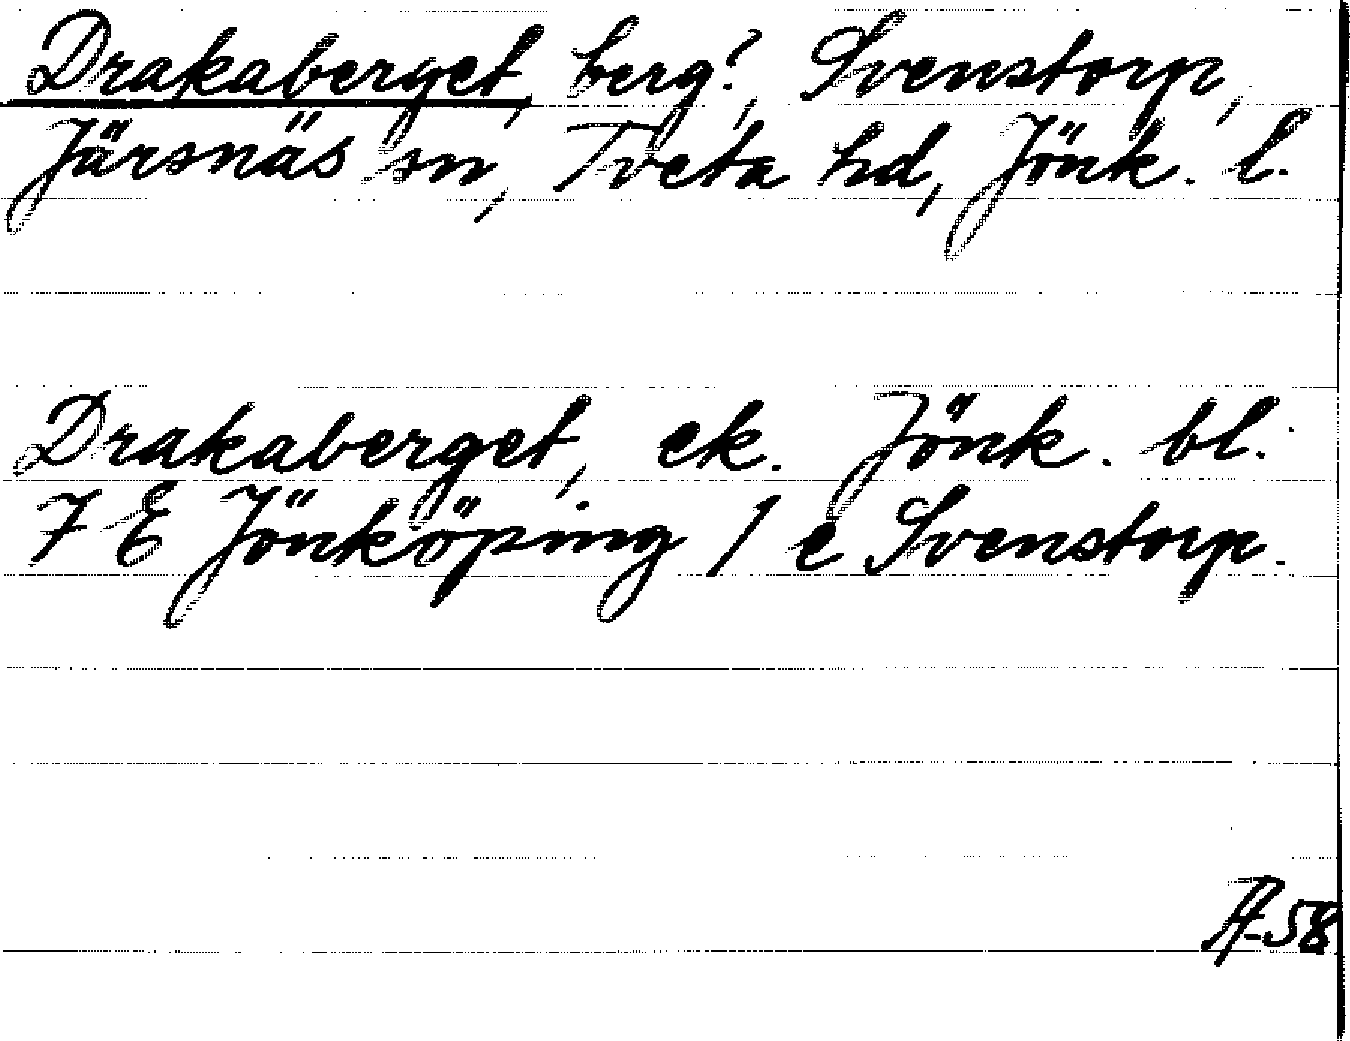 Drakaberget, berg?, Svenstorp,
Järsnäs sn, Tveta hd, Jönk. l.
Drakaberget, ek. Jönk. bl.
7 E Jönköping 1 e Svenstorp.
-58